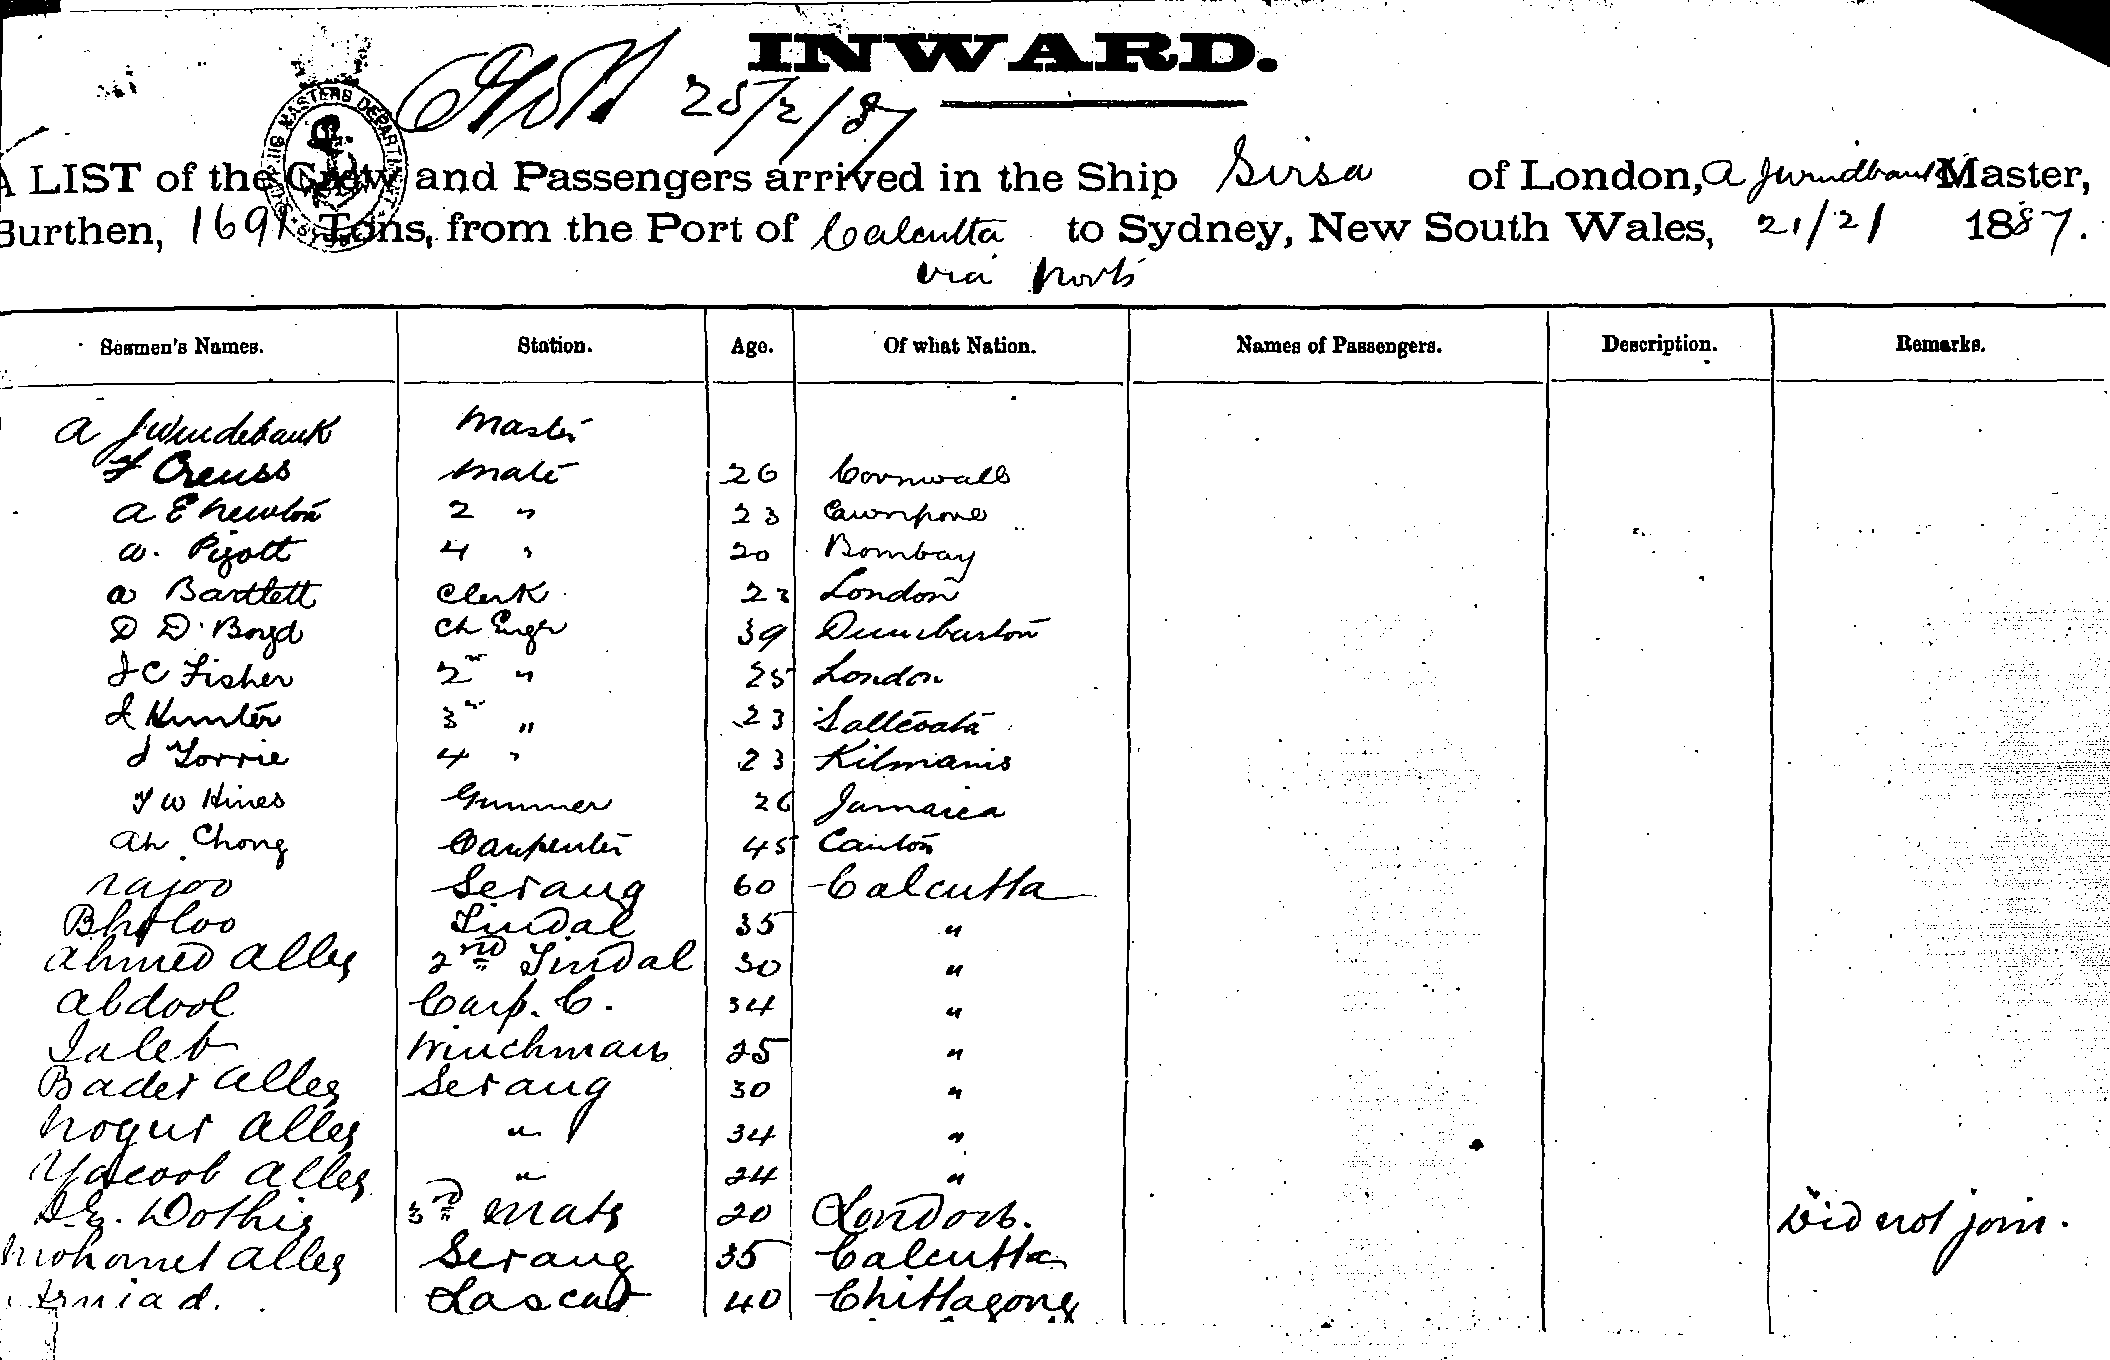 INWARD.
25/2/87
SHIPPING MASTERS DEPARTMENT
A LIST of the Crew and Passengers arrived in the Ship Sirsa of London, A J Windebank Master,
Burthen, 1691 Tons, from the Port of Calcutta to Sydney, New South Wales, 21/2/ 1887.
via Ports
Seamen's Names. Station. Age. Of what Nation. Names of Passengers. Description. Remarks.
A J Windebank Master
F Creuss Mate 26 Cornwall
A E Newton 2 " 23 Cawnpore
W. Pigott 4 " 20 Bombay
A Bartlett Clerk 23 London
D D. Boyd Ch Engr 39 Dumbarton
J C Fisher 2nd " 25 London
J Hunter 3rd " 23 Saltcoats
J Torrie 4 " 23 Kilmarnis
T W Hines Gunner 26 Jamaica
Ah Chong Carpenter 45 Canton
Rajoo Serang 60 Calcutta
Bholoo Tindal 35 "
Ahmed Alley 2nd Tindal 30 "
Abdool Carp. C. 34 "
Taleb Winchman 25 "
Bader Alley Serang 30 "
Nogur Alley " 34 "
Yacoob Alley " 24 "
Dothie 3rd Mate 20 London. Did not join.
Mohomet Alley Serang 35 Calcutta
Lascar 40 Chittagong